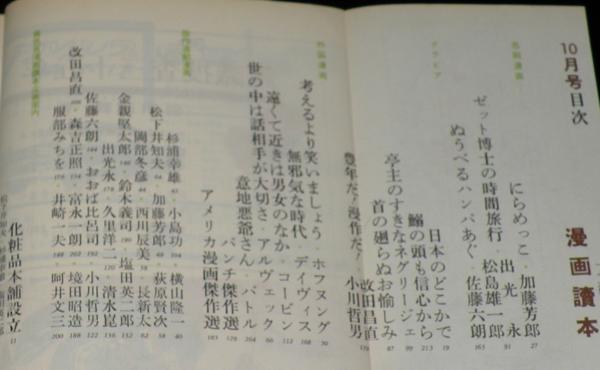 10月号目次
漫画讀本
長篇漫画
にらめっこ・加藤芳郎 27
出光永 91
ゼット博士の時間旅行・松島一郎
ぬうべるハンバあぐ・佐藤六朗 163
グラビア
日本のどこかで 19
鰯の頭も信心から 213
亭主のすきなネグリージェ 99
首の廻らぬお愉しみ 87
改田昌直
豊年だ!漫作だ! 小川哲男
外国漫画
考えるより笑いましょう・ホフヌング 70
無邪気な時代・デイヴィス 168
遠くて近きは男女のなか・コービン 112
世の中は話相手が大切さ・アルヴェック 66
意地悪爺さん・バトル 204
パンチ傑作選 129
アメリカ漫画傑作選 183
杉浦幸雄 43・小島功 104・横山隆一 40
松下井知夫 64・加藤芳郎 60・荻原賢次 48
岡部冬彦 84・西川辰美 58・長新太 82
金親堅太郎・鈴木義司・塩田英二郎 152
出光永 178・久里洋二 120・清水崑 136
佐藤六朗 144・おおば比呂司 192・小川哲男 122
改田昌直・森吉正照 154・富永一朗 202・境田昭造 188
服部みちを 176・井崎一夫 198・呵井文三 200
化粧品本舗設立 11